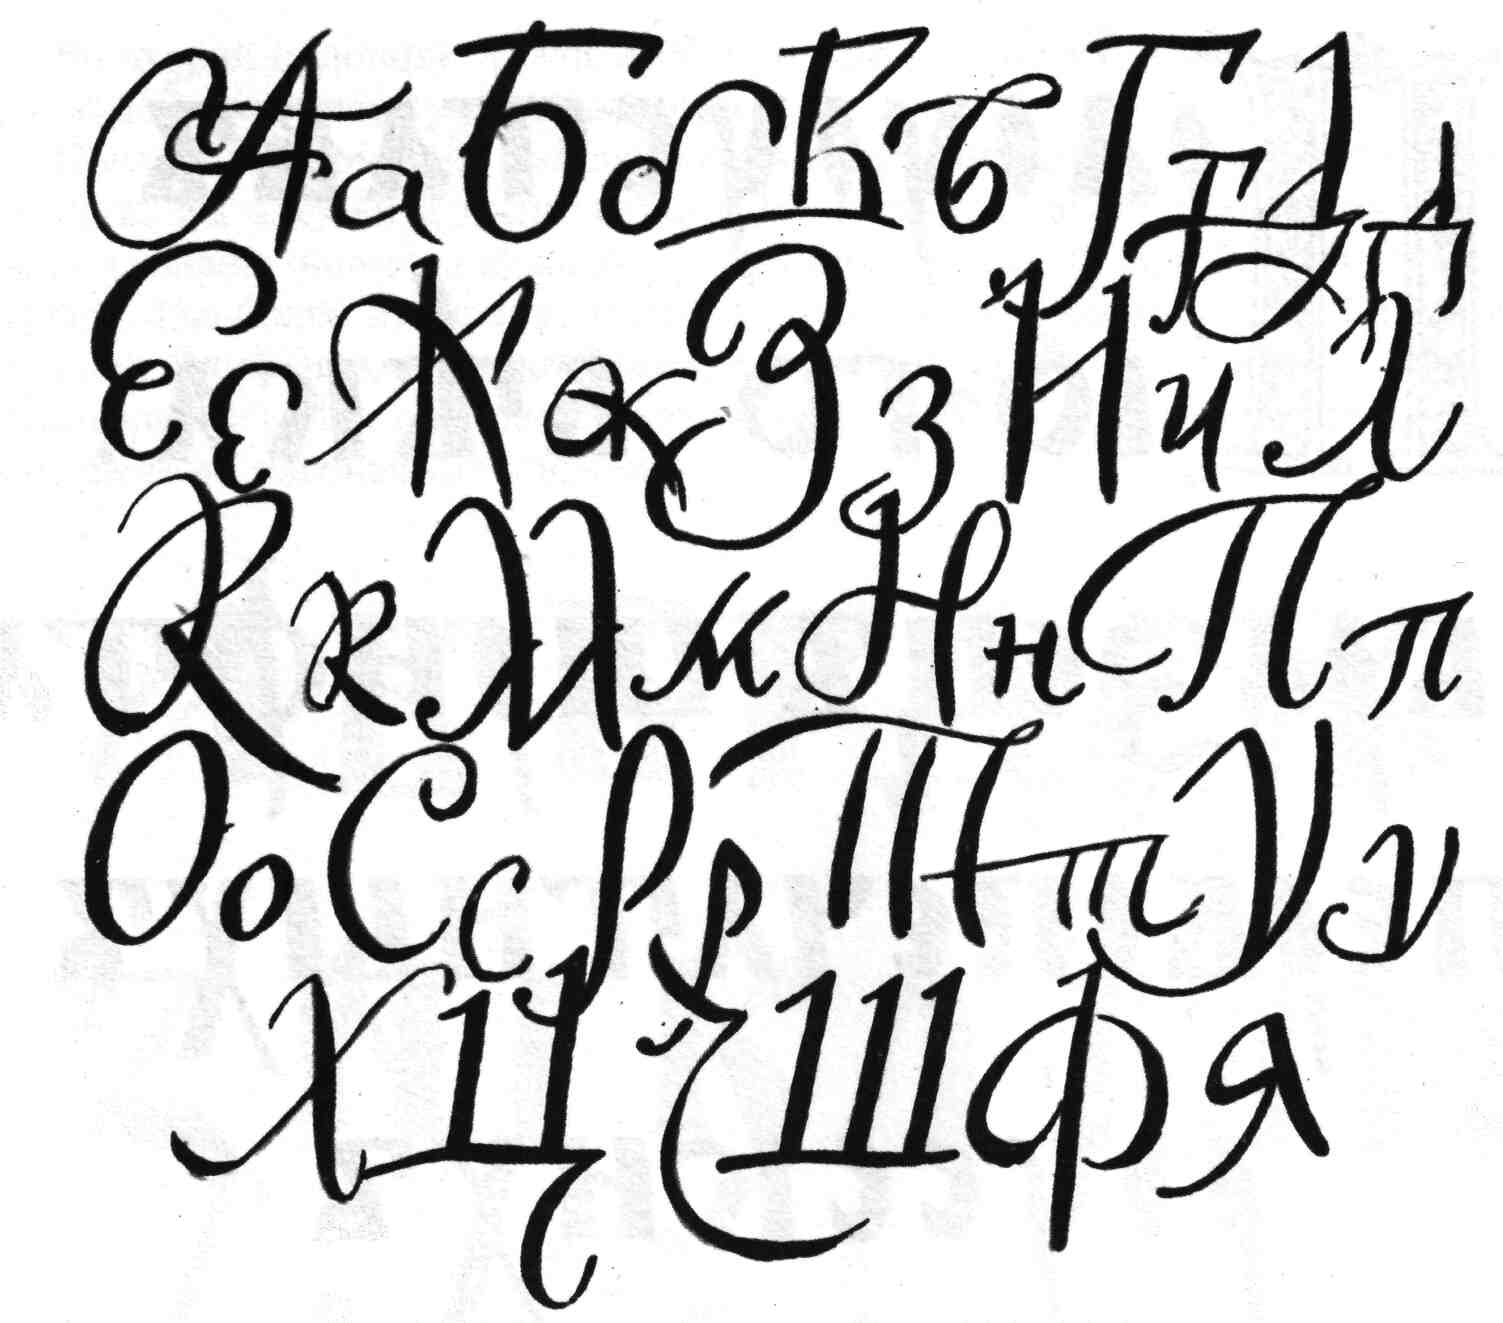 Аа Бб Вв Гг Дд
Ее Жж Зз Ии Л
Кк Мм Нн Пп
Оо Сс Рр Тт Уу
Х Ц Ч Ш Ф Я